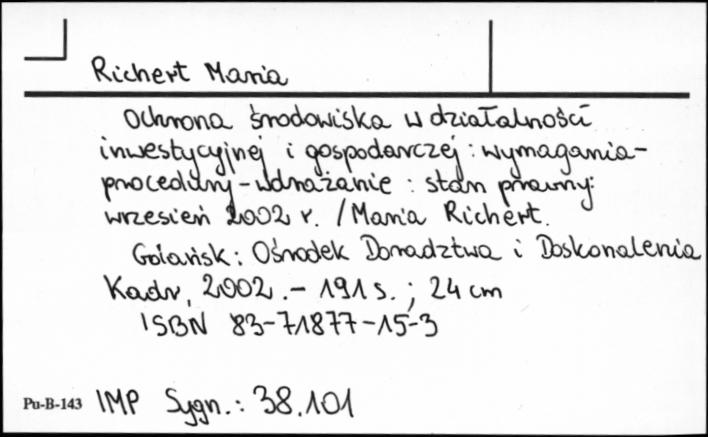 Richert Maria
Ochrona środowiska w działalności
inwestycyjnej i gospodarczej : wymagania-
procedury-wdrażanie : stan prawny:
wrzesień 2002 r. / Maria Richert.
Gdańsk : Ośrodek Doradztwa i Doskonalenia
Kadr, 2002. - 191 s. ; 24 cm
ISBN 83-71877-15-3
Pu-B-143 IMP Sygn.: 38.101